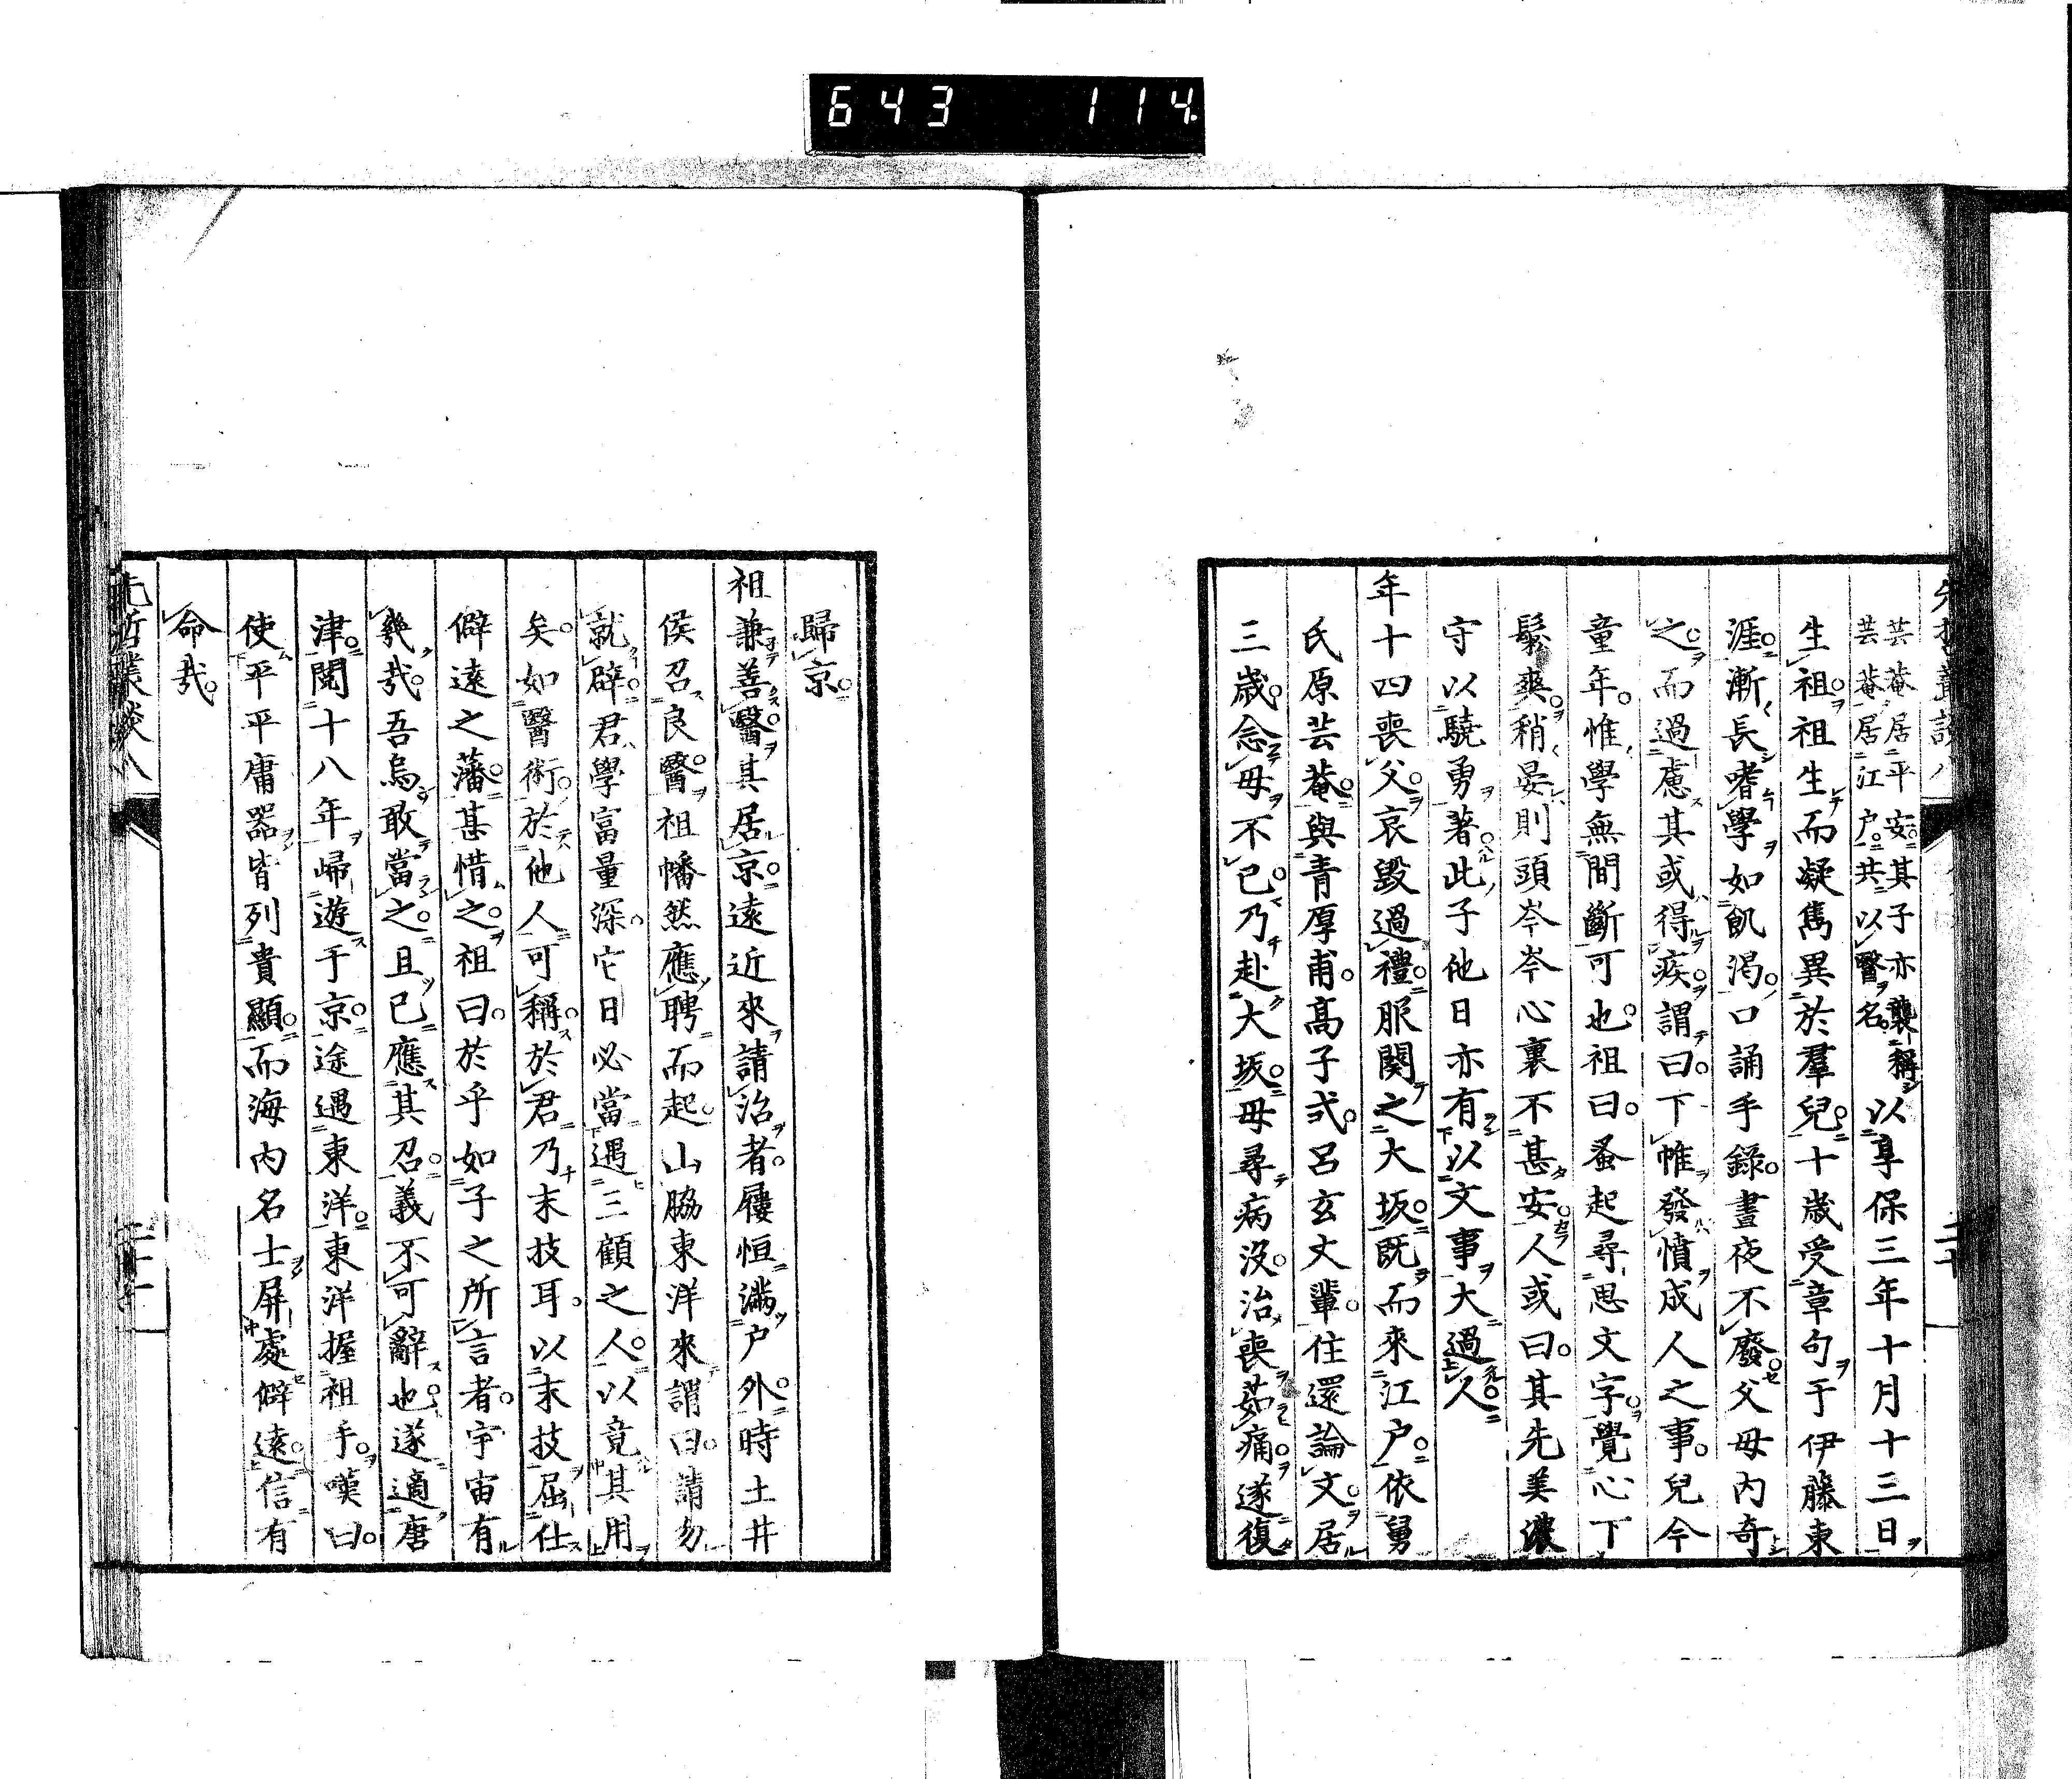 643 114
芸菴居平安其子亦襲稱
芸菴居江户共以醫名
以享保三年十月十三日
生祖祖生而凝雋異於羣兒十歲受章句于伊藤東
涯漸長嗜學如飢渴口誦手錄晝夜不廢父母内奇
之而過慮其或得疾謂曰下帷發憤成人之事兒今
童年惟學無間斷可也祖曰蚤起尋思文字覺心下
鬆爽稍晏則頭岑岑心裏不甚安人或曰其先美濃
守以驍勇著此子他日亦有以文事大過人
年十四喪父哀毀過禮服闋之大坂既而來江户依舅
氏原芸菴與青厚甫高子式呂玄丈輩住還論文居
三歲念母不已乃赴大坂母尋病沒治喪茹痛遂復
歸京
祖兼善醫其居京遠近來請治者屨恒滿户外時土井
侯召良醫祖幡然應聘而起山脇東洋來謂曰請勿
就辟君學富量深它日必當遇三顧之人以竟其用
矣如醫術於他人可稱於君乃末技耳以末技屈仕
僻遠之藩甚惜之祖曰於乎如子之所言者宇宙有
幾哉吾烏敢當之且已應其召義不可辭也遂適唐
津閱十八年歸遊于京途遇東洋東洋握祖手嘆曰
使平平庸器皆列貴顯而海内名士屏處僻遠信有
命哉
先哲叢談八